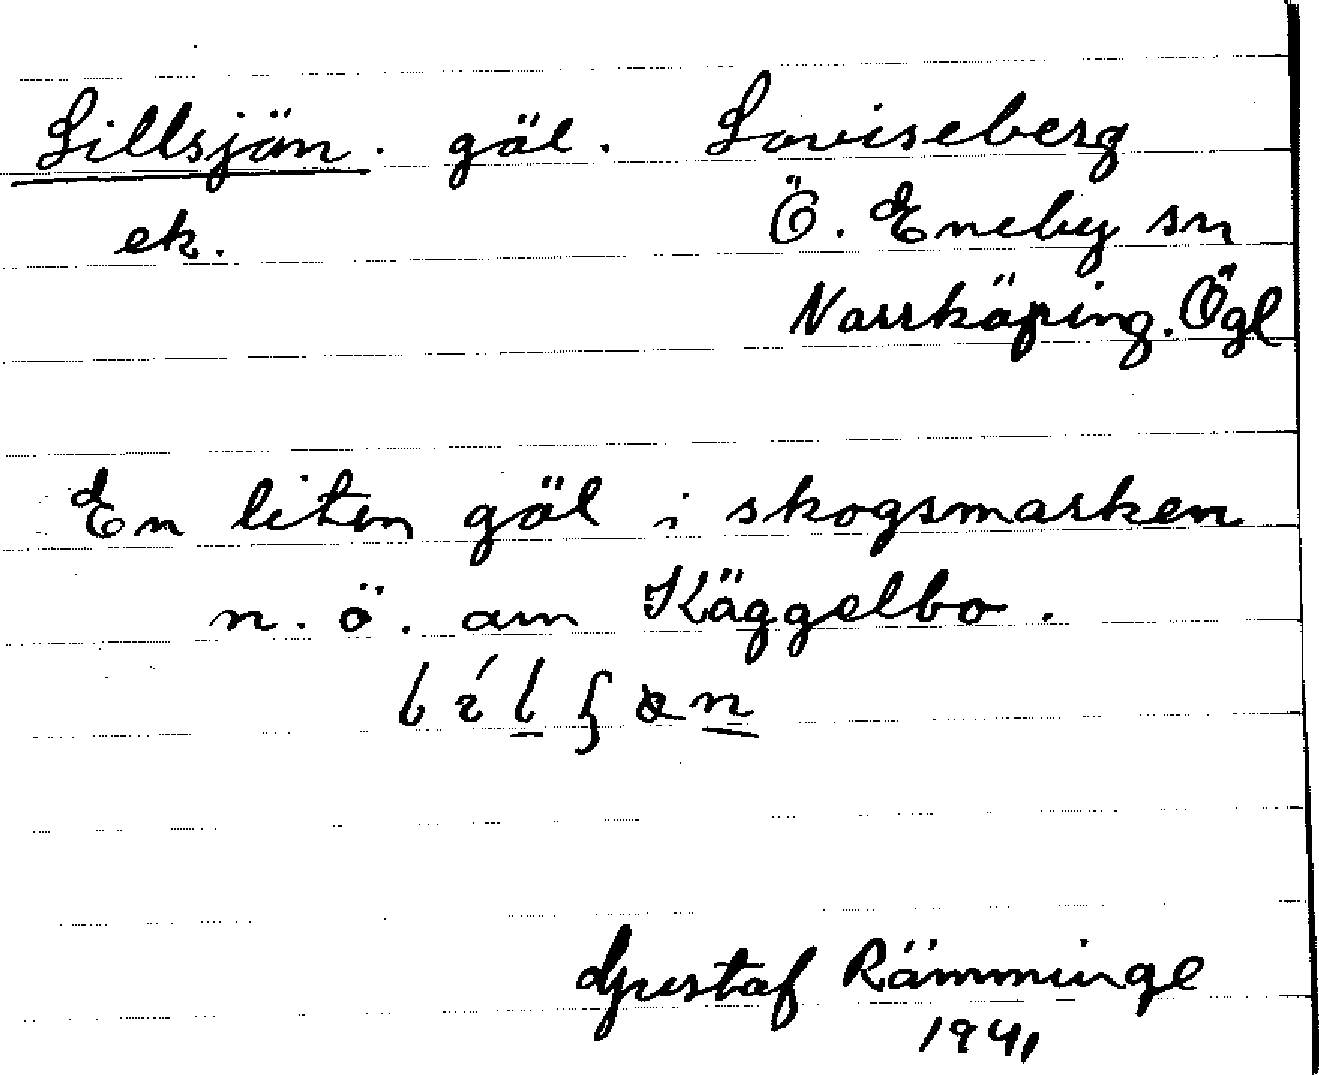 Lillsjön. göl. Loviseberg
ek. Ö. Eneby sn
Norrköping. Ögl
En liten göl i skogsmarken
n. ö. om Käggelbo.
Gustaf Römminge
1941